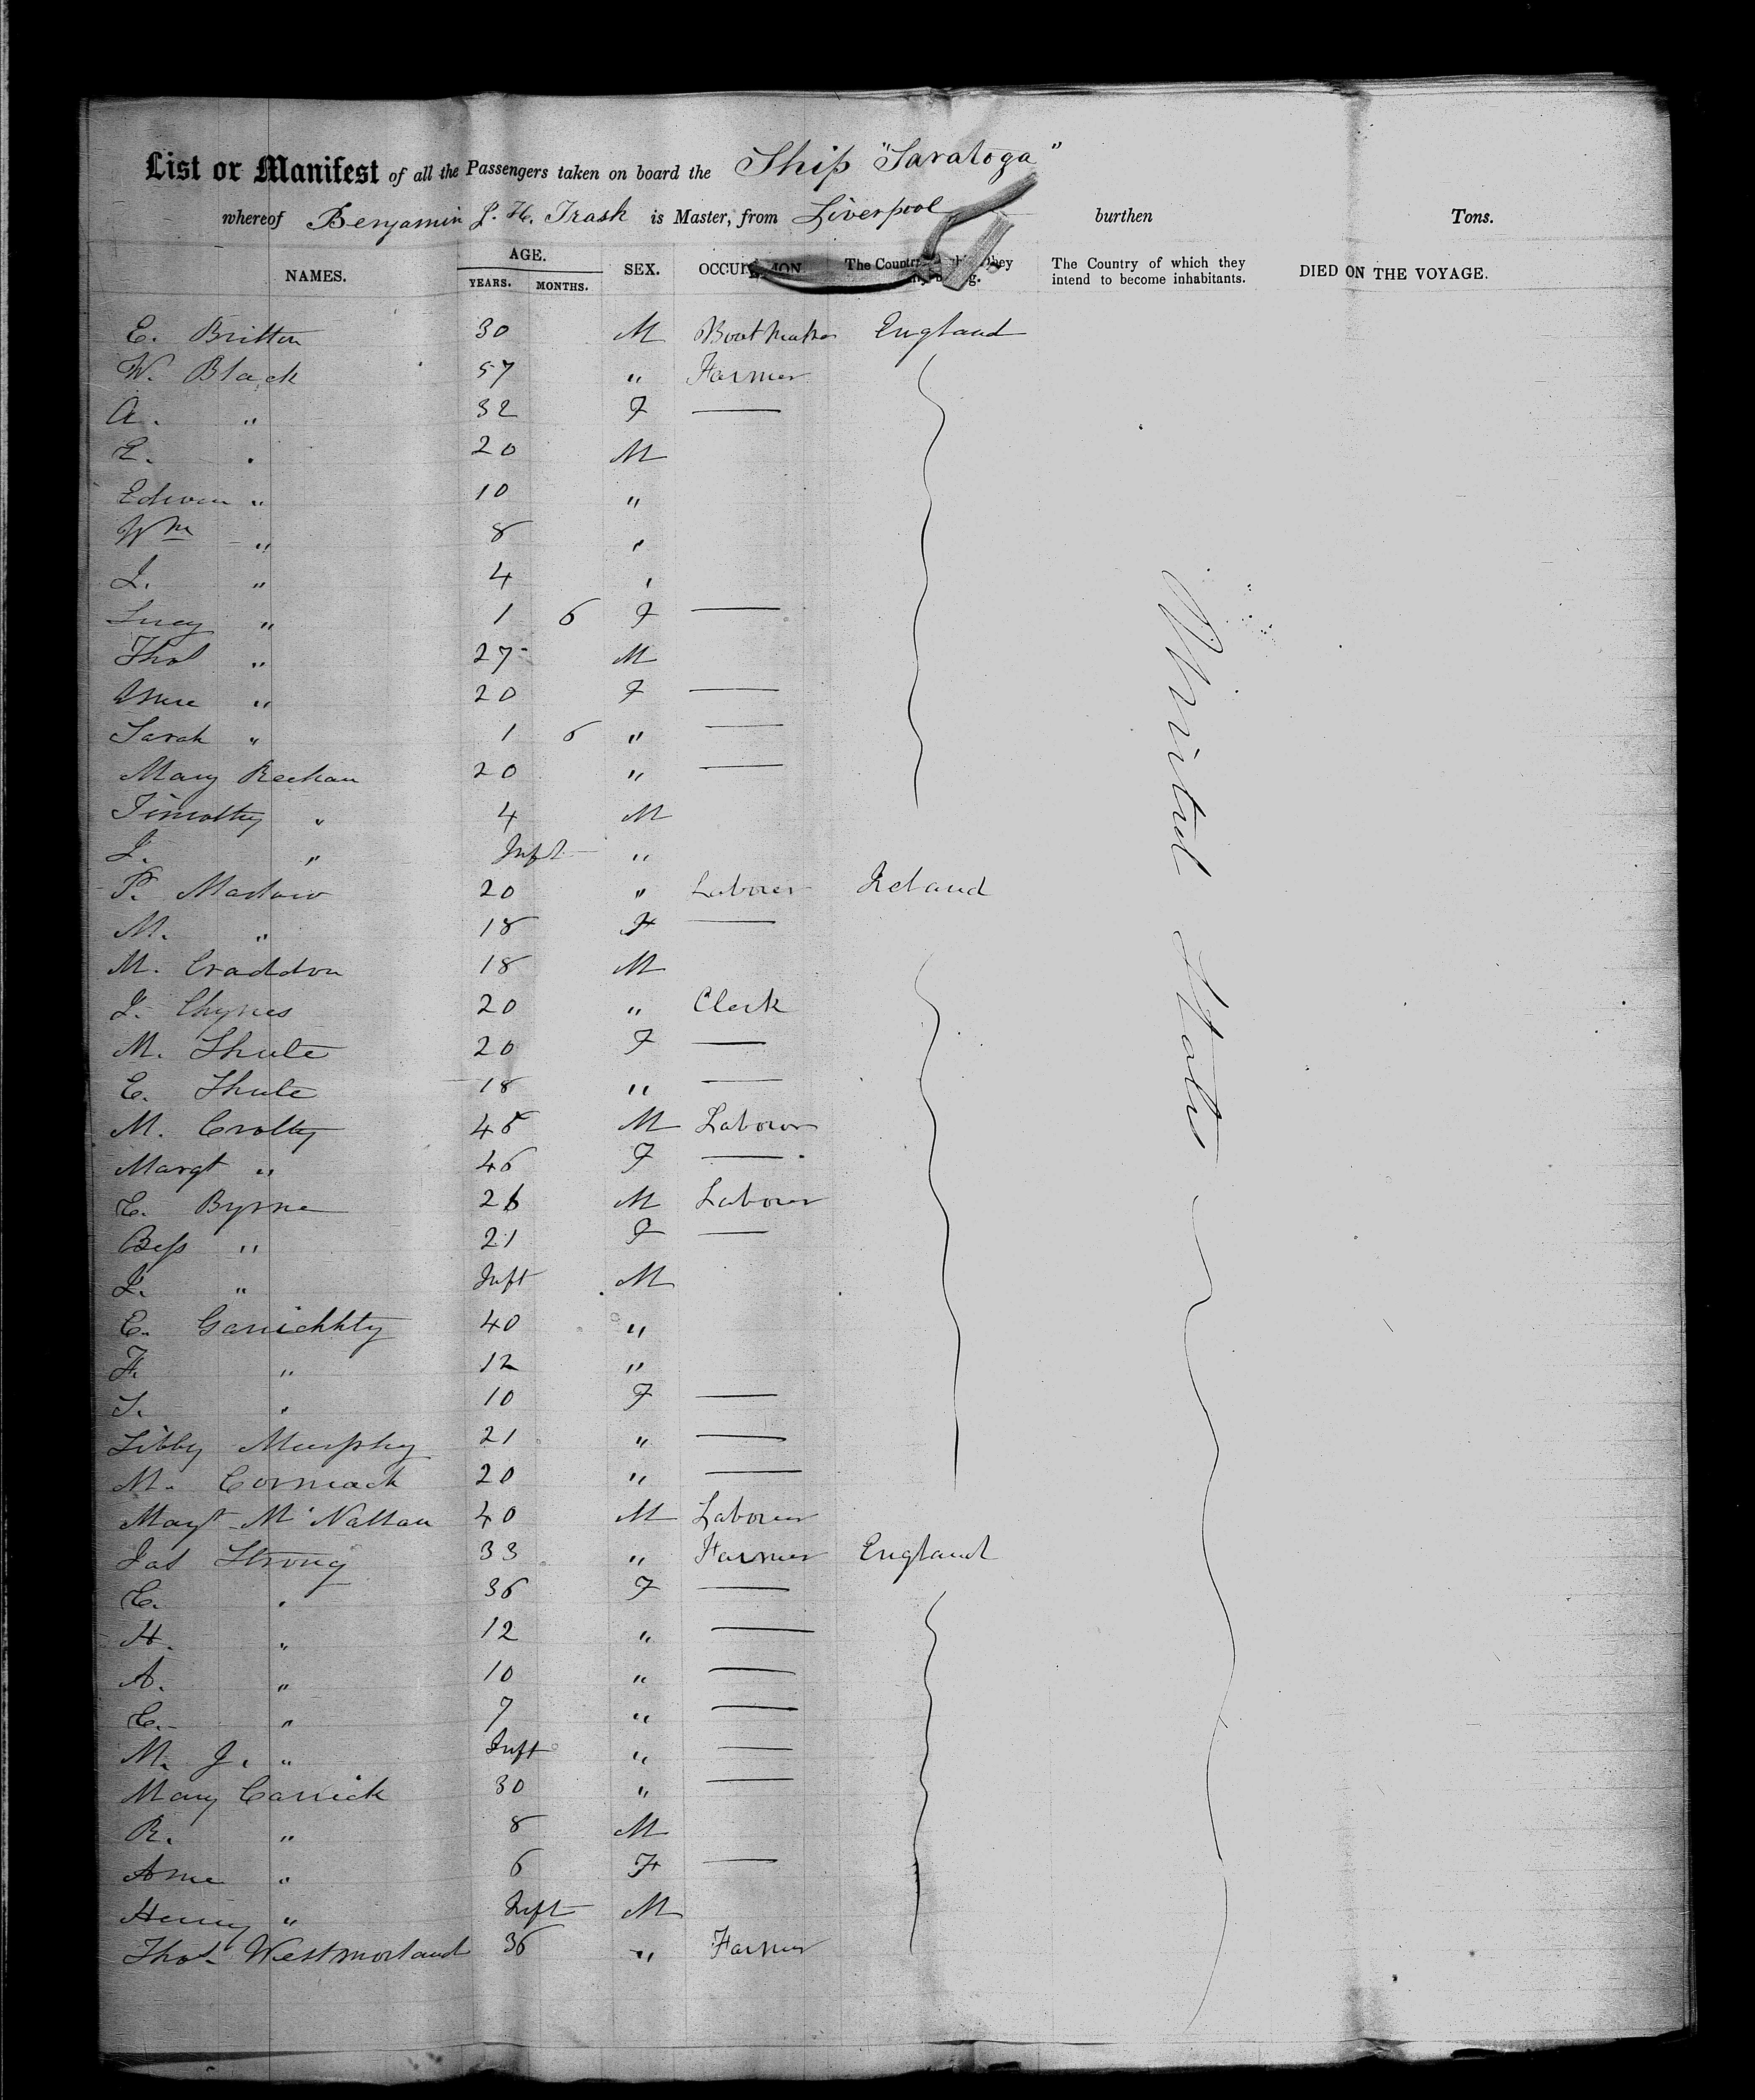 List or Manifest of all the Passengers taken on board the Ship "Saratoga"
whereof Benjamin J. H. Trask is Master, from Liverpool burthen Tons.
NAMES. AGE. YEARS. MONTHS. SEX. The Country of which they intend to become inhabitants. DIED ON THE VOYAGE.
E. Britton 30 M Boot Maker England
W. Black 57 " Farmer
A. " 32 F —
E. " 20 M
Edwin " 10 "
Wm " 8 "
J. " 4 "
Lucy " 1 6 F —
Thos " 27 M
" 20 F —
Sarah " 1 6 " —
Mary Reehan 20 " —
Timothy " 4 M
J. " Inft "
P. Marlow 20 " Labourer Ireland
M. " 18 F —
M. Craddon 18 M
J. Chynes 20 " Clerk
M. Shute 20 F —
E. Shute 18 " —
M. Crotty 45 M Labourer
Margt " 46 F —
C. Byrne 26 M Labourer
Bess " 21 F —
J. " Inft M
C. Garrichhty 40 "
F. " 12 "
S. " 10 F —
Libby Murphy 21 " —
M. Cormack 20 " —
Margt McNallan 40 M Labourer
Jas Strong 33 " Farmer England
C. " 36 F —
H. " 12 " —
A. " 10 " —
C. " 7 " —
M. J. " Inft " —
Mary Carrick 30 " —
R. " 8 M
Anne " 6 F —
Henry " Inft M
Thos Westmorland 36 " Farmer
United States